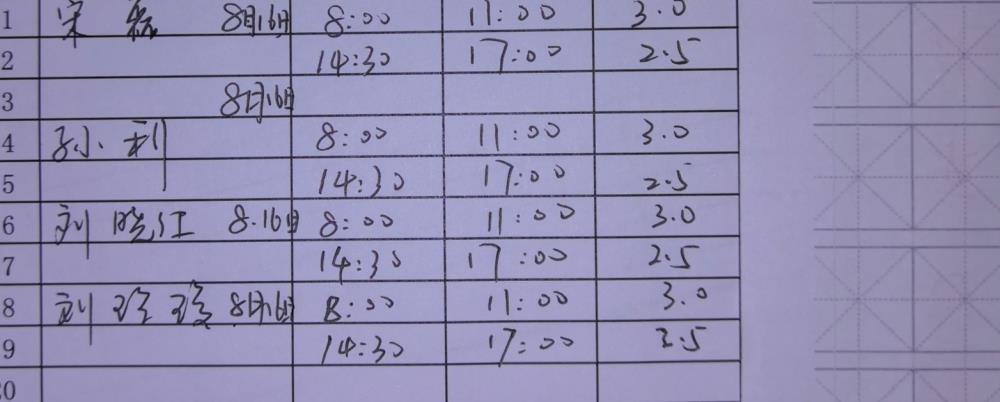 1 宋 8月16日 8:00 11:00 3.0
2 14:30 17:00 2.5
3 8月16日
4 孙利 8:00 11:00 3.0
5 14:30 17:00 2.5
6 刘晓红 8.16日 8:00 11:00 3.0
7 14:30 17:00 2.5
8 刘珍珍 8月16日 8:00 11:00 3.0
9 14:30 17:00 2.5
0